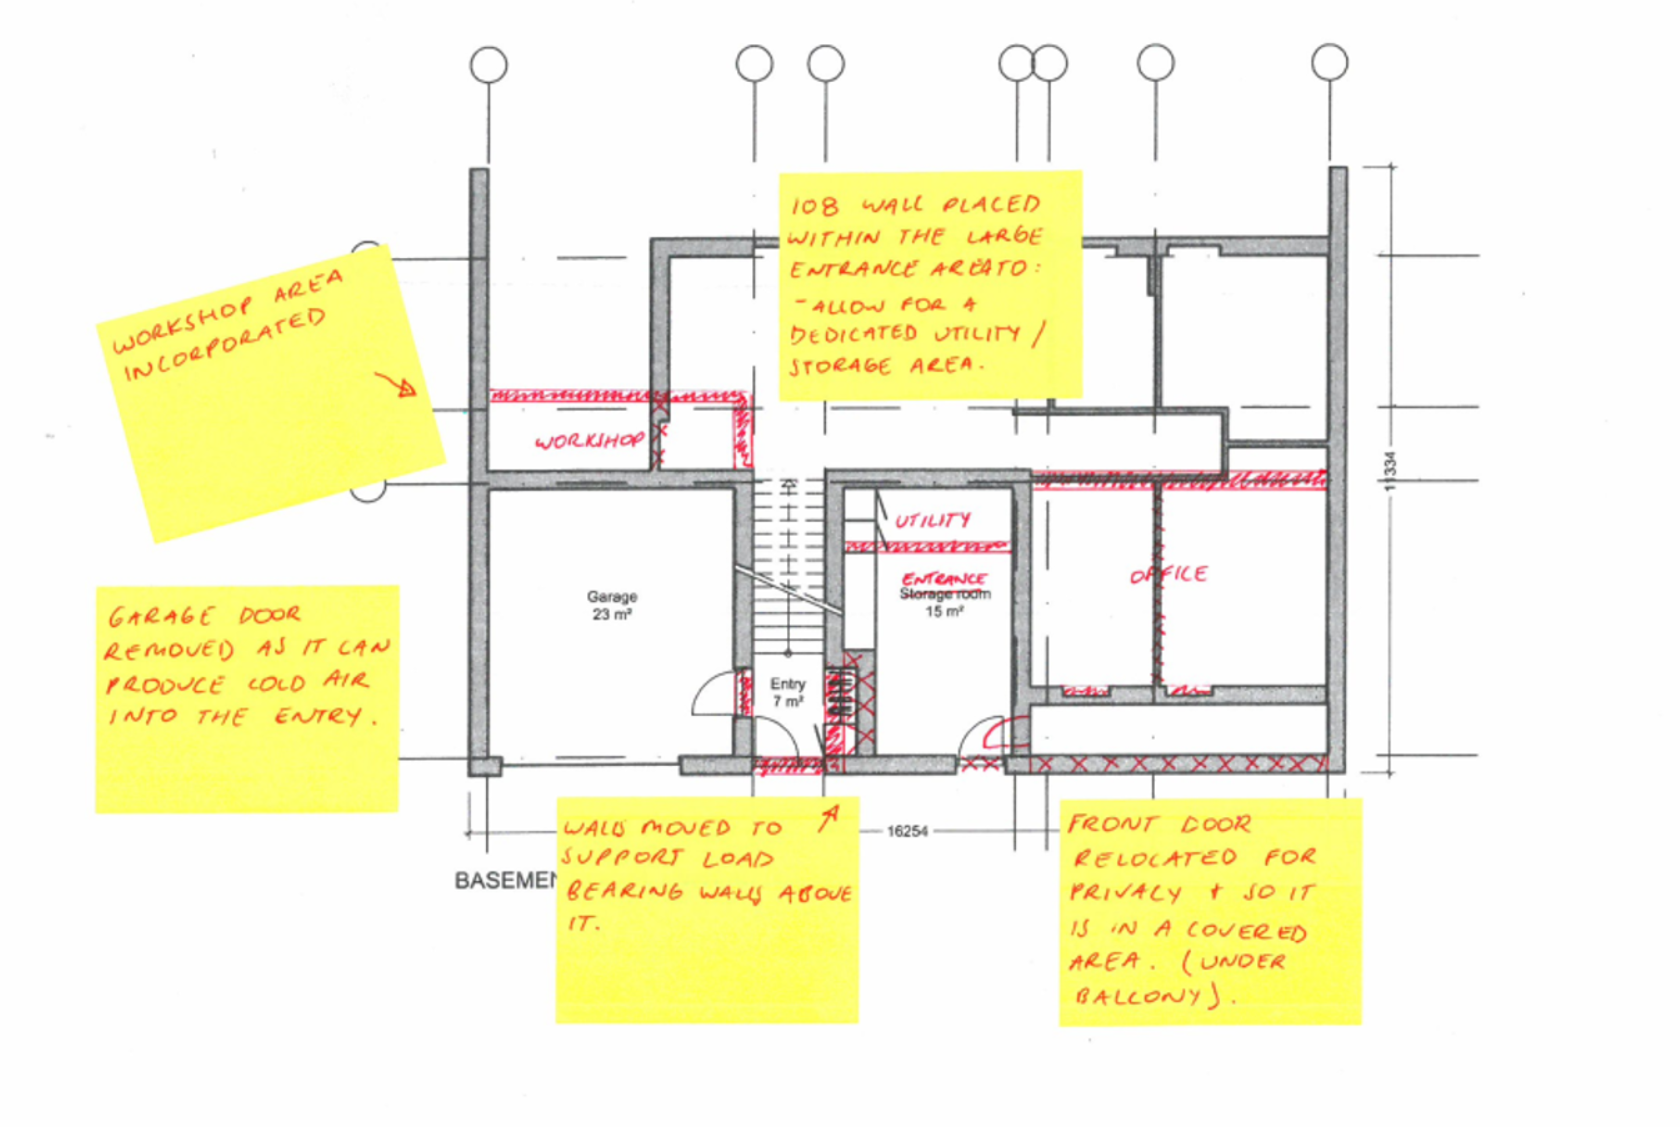 108 WALL PLACED
WITHIN THE LARGE
ENTRANCE AREA TO:
- ALLOW FOR A
DEDICATED UTILITY /
STORAGE AREA.
WORKSHOP AREA
INCORPORATED
WORKSHOP
11334
UTILITY
ENTRANCE
Storage room
15 m²
OFFICE
Garage
23 m²
GARAGE DOOR
REMOVED AS IT CAN
PRODUCE COLD AIR
INTO THE ENTRY.
Entry
7 m²
16254
BASEMEN
WALLS MOVED TO
SUPPORT LOAD
BEARING WALLS ABOVE
IT.
FRONT DOOR
RELOCATED FOR
PRIVACY + SO IT
IS IN A COVERED
AREA. (UNDER
BALCONY).